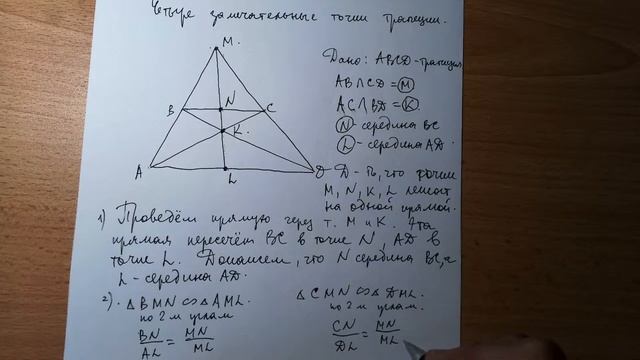 Четыре замечательные точки трапеции.
M.
B
N
C
K.
A
L
D
Дано: ABCD-трапеция
AB∩CD = M
AC∩BD = K
N - середина BC
L - середина AD.
Д-ть, что точки
M, N, K, L лежат
на одной прямой.
1) Проведём прямую через т. M и K. Эта
прямая пересечёт BC в точке N, AD в
точке L. Докажем, что N середина BC, а
L - середина AD.
2). △BMN ∞ △AML.
по 2м углам
BN/AL = MN/ML
△CMN ∞ △DML.
по 2м углам.
CN/DL = MN/ML